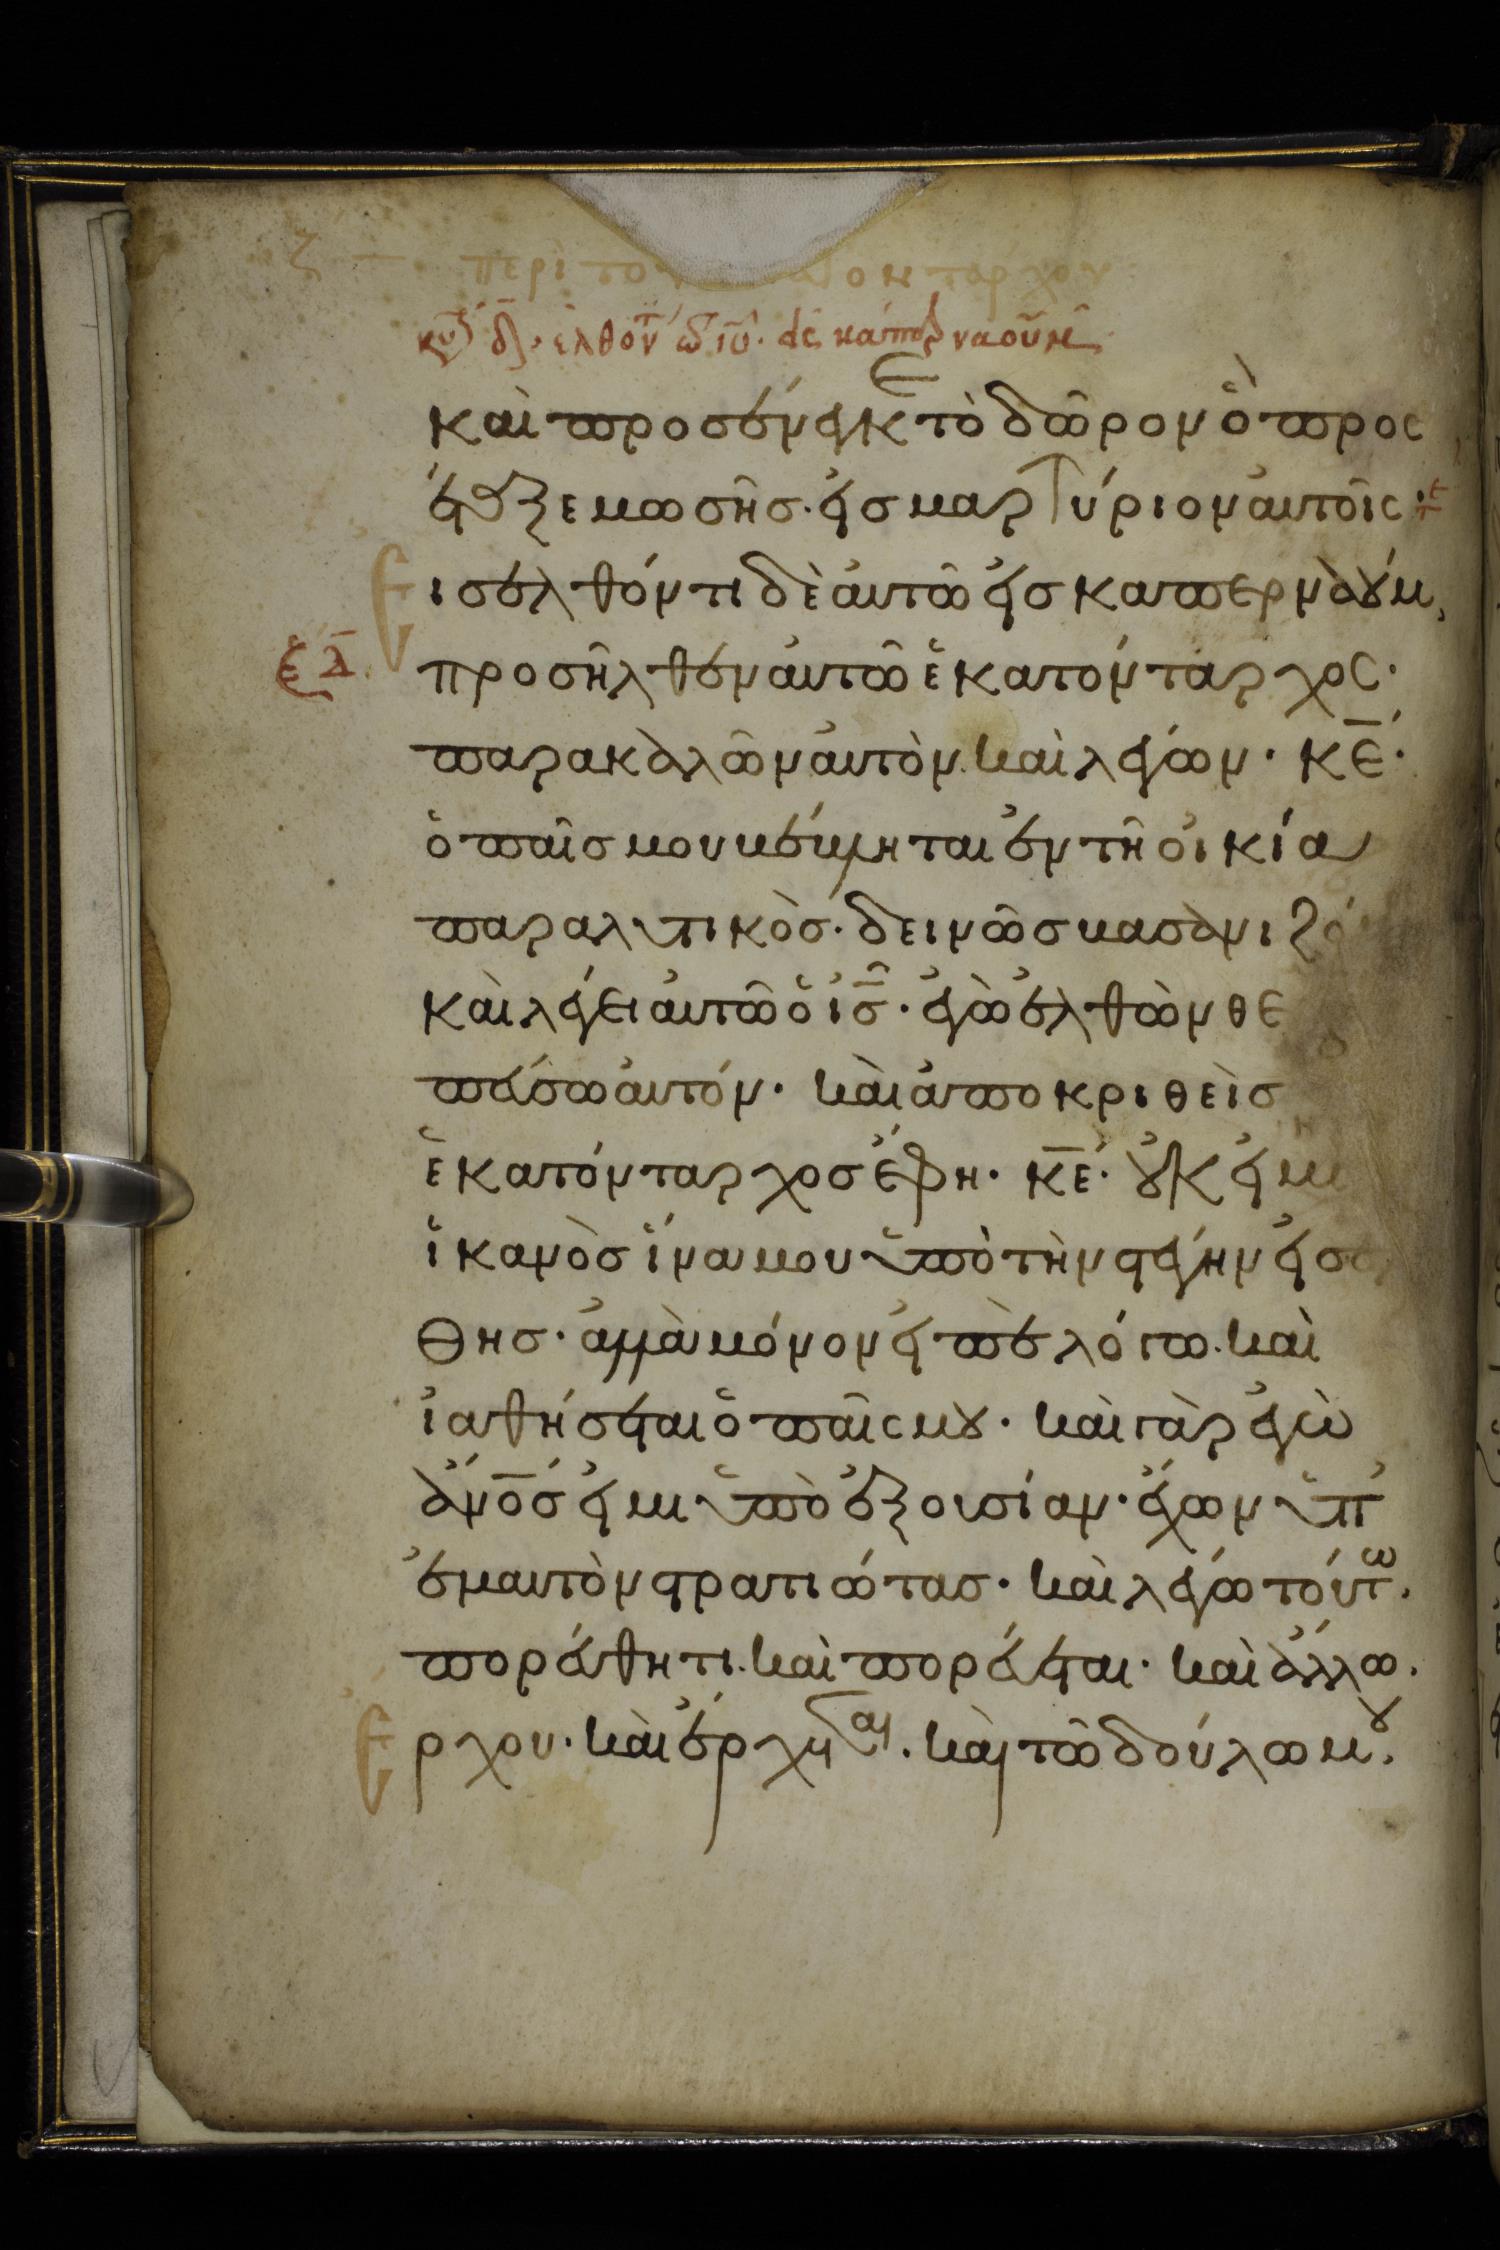 ζ περὶ το οντάρχου
κυ δ. ἐλθόντ τω ιυ. εἰς καπερναούμ
καὶ προσένεγκε τὸ δῶρον ὃ προσ
έταξε μωσῆσ· εἰσ μαρτύριον αὐτοῖς:
Εισελθόντι δὲ αὐτῶ εἰσ καπερναούμ,
ξδ
προσῆλθεν αὐτῶ ἑκατόνταρχος·
παρακαλῶν αὐτὸν. καὶ λέγων· κε̅·
ὁ παῖσ μου κέκληται ἐν τῆ οἰκία
παραλυτικὸσ· δεινῶσ βασανιζό
καὶ λέγει αὐτῶ ὁ ισ̅· ἐγὼ ἐλθὼν θε
πεύσω αὐτόν· καὶ ἀποκριθεὶσ
ἑκατόνταρχοσ ἔφη· κε̅· οὐκ εἰμι
ἱκανὸσ ἵνα μου ὑπὸ τὴν στέγην εἰσέλ
θησ· ἀλλὰ μόνον εἰπὲ λόγω. καὶ
ἰαθήσεται ὁ παῖς μου· καὶ γὰρ ἐγὼ
ἄνο̅σ εἰμι ὑπὸ ἐξουσίαν· ἔχων ὑπ
ἐμαυτὸν στρατιώτασ· καὶ λέγω τούτω.
πορεύθητι. καὶ πορεύεται· καὶ ἄλλω.
Ερχου· καὶ ἔρχεται. καὶ τῶ δούλω μου.